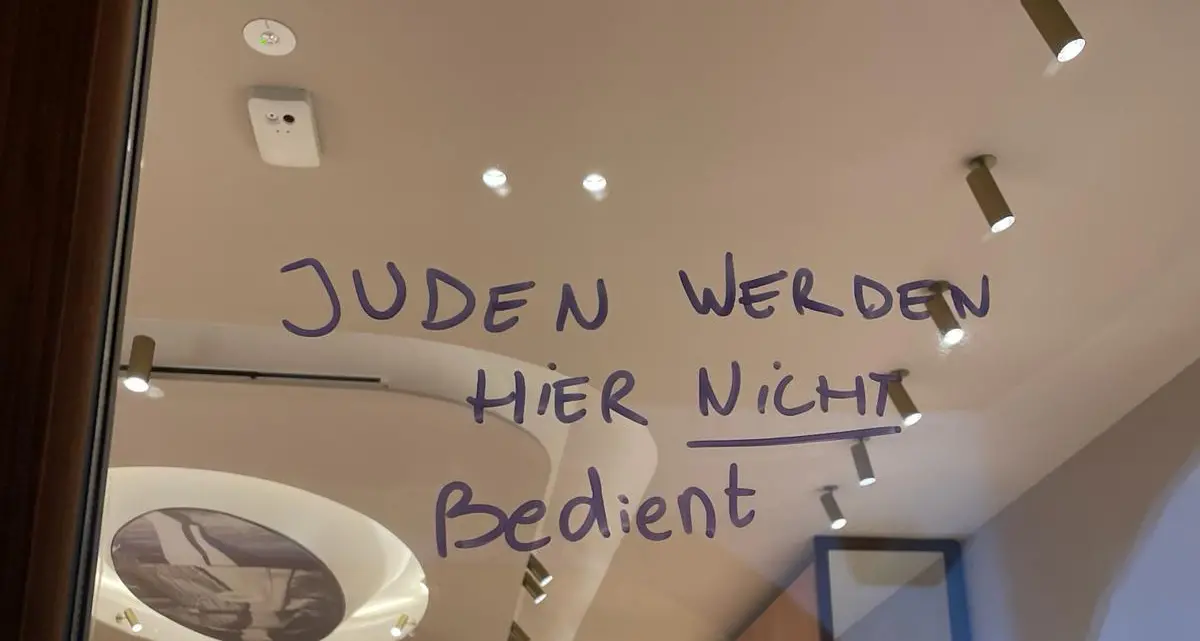 JUDEN WERDEN
HiER NiCHT
Bedient